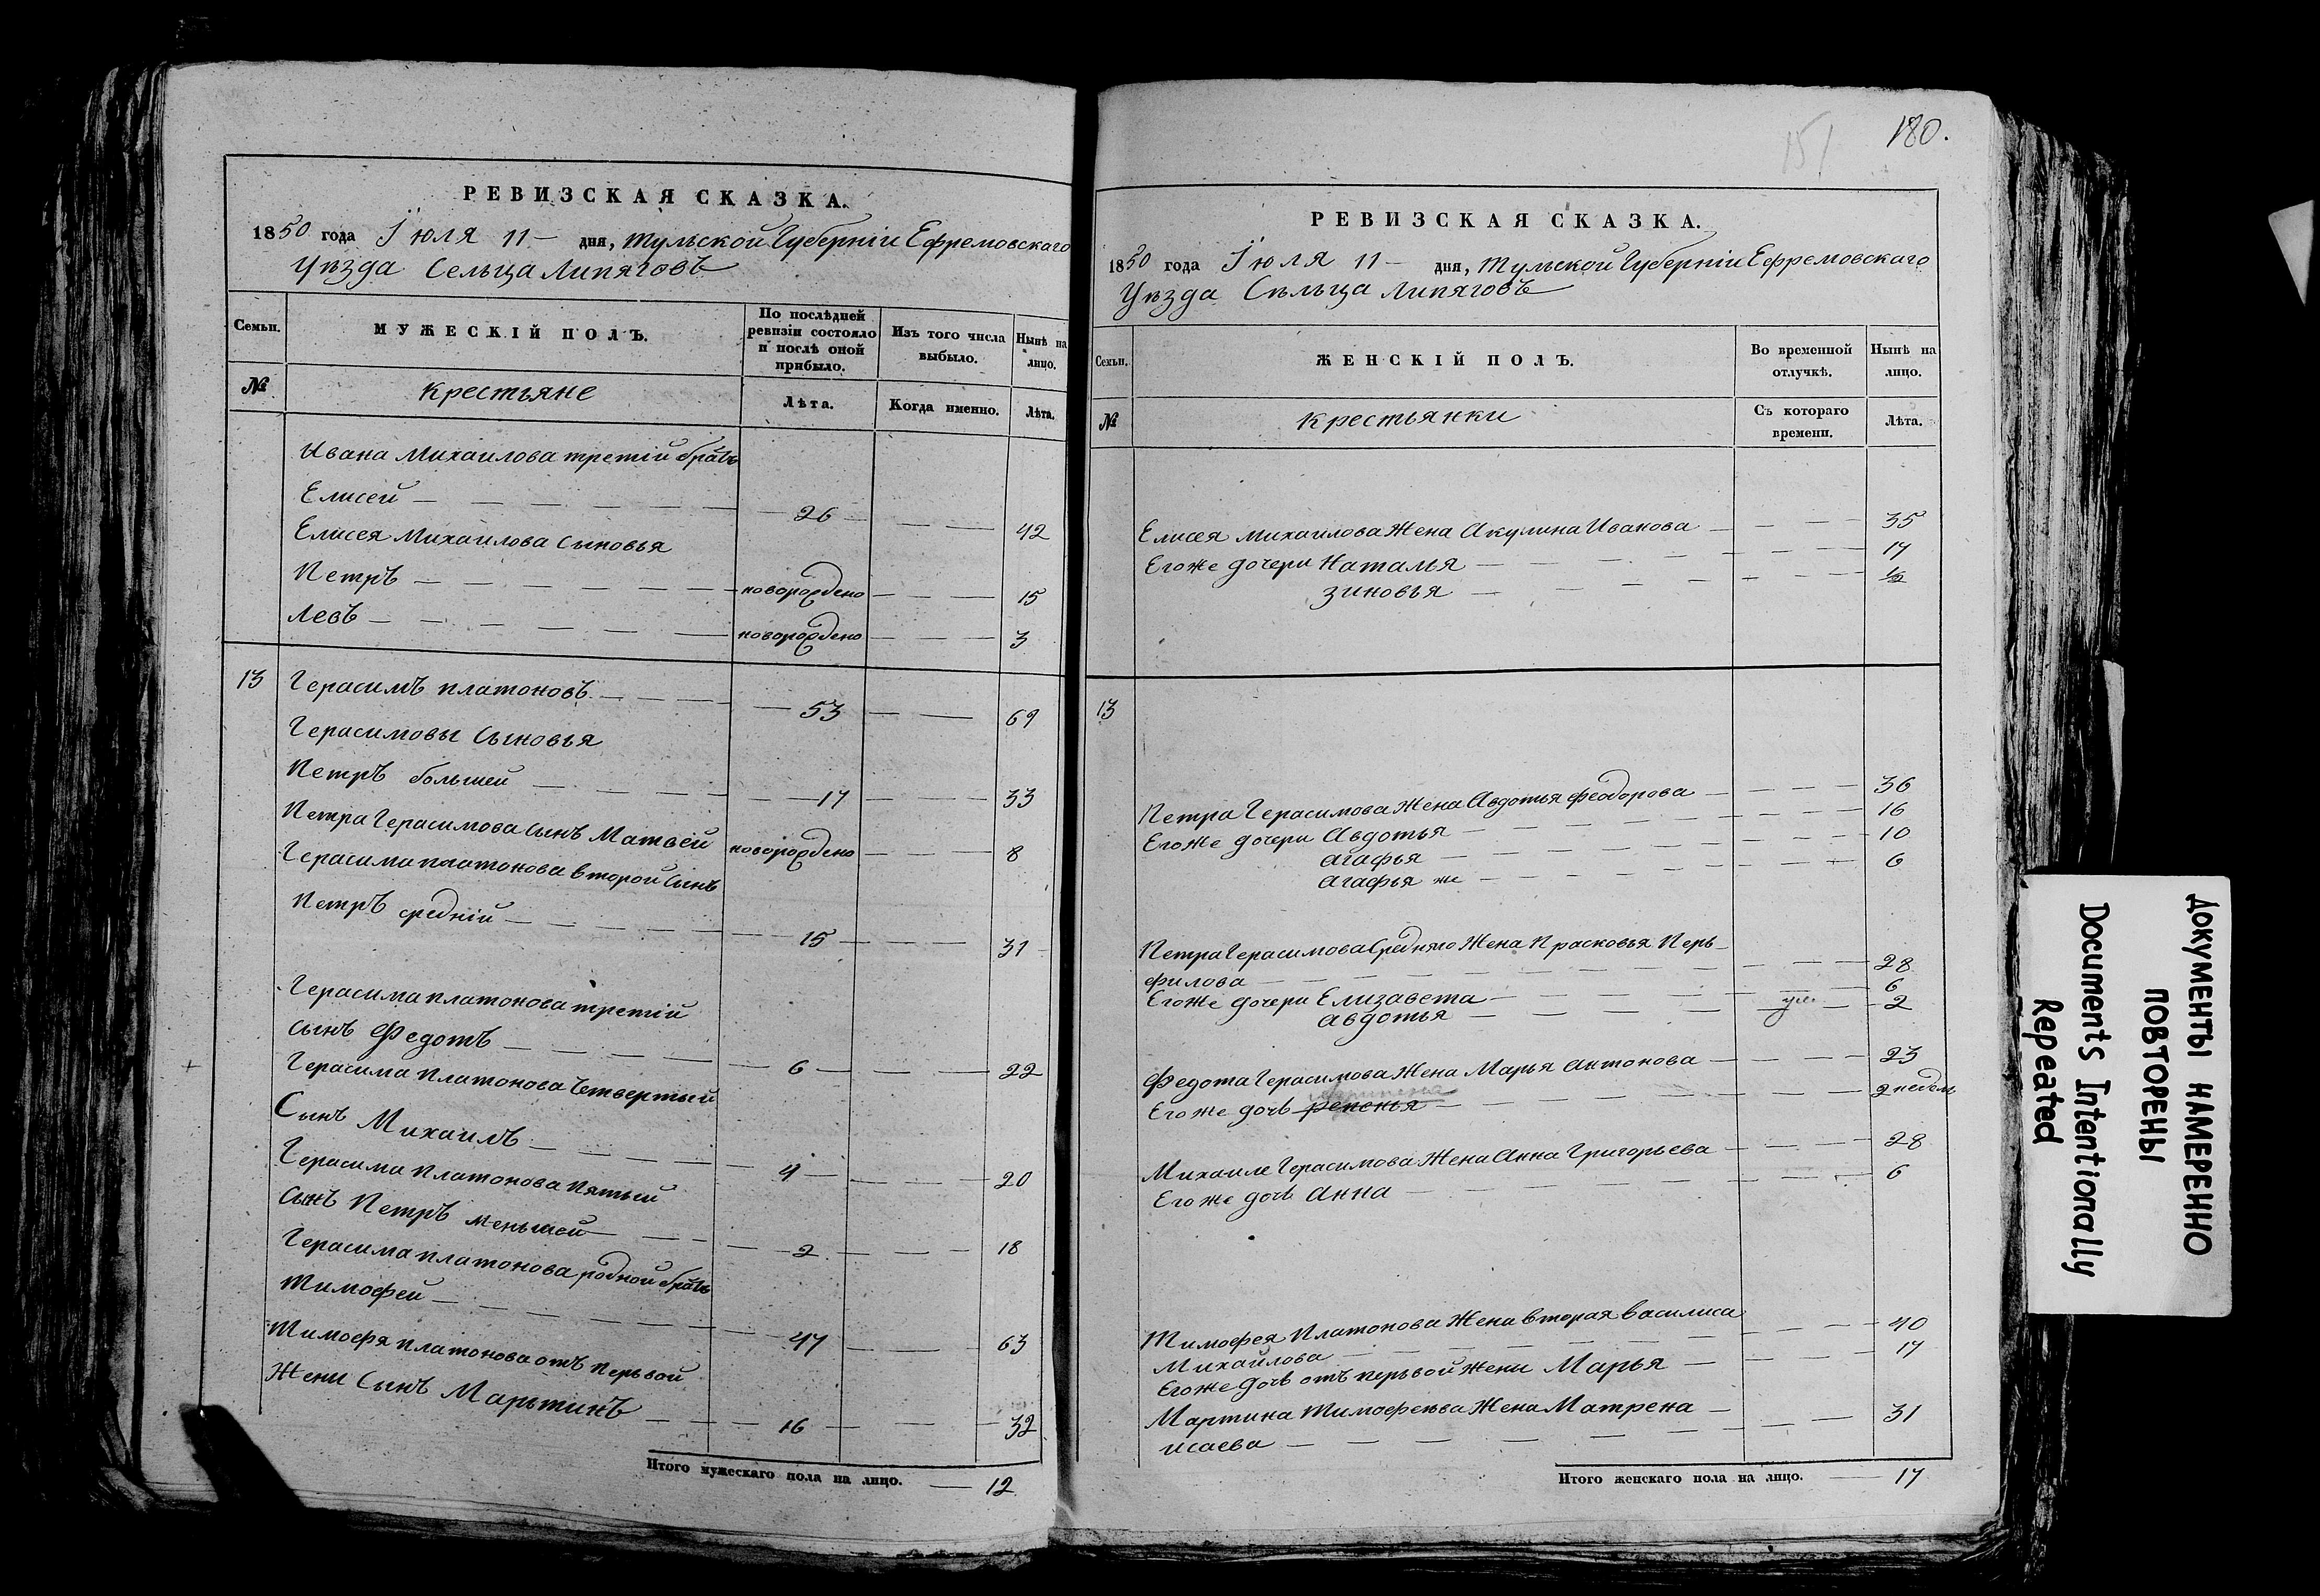 РЕВИЗСКАЯ СКАЗКА.
1850 года Іюля 11 дня, Тульской Губерніи Ефремовскаго
Уѣзда Сельца Липяговъ
Семьи.
МУЖЕСКІЙ ПОЛЪ.
По послѣдней ревизіи состояло и послѣ оной прибыло.
Изъ того числа выбыло.
Нынѣ на лицо.
№
Крестьяне
Лѣта.
Когда именно.
Лѣта.
Ивана Михаилова третій братъ
Елисей — 26 — 42
Елисея Михаилова Сыновья
Петръ — новорождено — 15
Левъ — новорождено — 3
13 Герасимъ Платоновъ — 53 — 69
Герасимовы Сыновья
Петръ большей — 17 — 33
Петра Герасимова Сынъ Матвей новорождено — 8
Герасима Платонова второй Сынъ
Петръ средній — 15 — 31
Герасима Платонова третій
Сынъ Федотъ — 6 — 22
Герасима Платонова Четвертый
Сынъ Михаилъ — 4 — 20
Герасима Платонова Пятый
Сынъ Петръ меньшей — 2 — 18
Герасима Платонова родной братъ
Тимофей — 47 — 63
Тимофя Платонова отъ Перьвой
Жени Сынъ Марьтинъ — 16 — 32
Итого мужескаго пола на лицо. — 12
151
180.
РЕВИЗСКАЯ СКАЗКА.
1850 года Іюля 11 — дня, Тульской Губерніи Ефремовскаго
Уѣзда Сѣльца Липяговъ
Семьи.
ЖЕНСКІЙ ПОЛЪ.
Во временной отлучкѣ.
Нынѣ на лицо.
№
Крестьянки
Съ котораго времени.
Лѣта.
Елисея Михаилова Жена Акулина Иванова — 35
Егоже дочери Наталья — 17
Зиновья — ½
13
Петра Герасимова Жена Авдотья Феодорова — 36
Егоже дочери Авдотья — 16
Агафья — 10
Агафья же — 6
Петра Герасимова Средняго Жена Прасковья Перь-
филова — 28
Егоже дочери Елизавета — 6
Авдотья — 2
Федота Герасимова Жена Марья Антонова — 23
Егоже дочь — 2 недели
Михаиле Герасимова Жена Анна Григорьева — 28
Егоже дочь Анна — 6
Тимофея Платонова Жена вторая Василиса
Михайлова — 40
Егоже дочь отъ перьвой жени Марья — 17
Мартина Тимофеява Жена Матрена —
Исаева — 31
Итого женскаго пола на лицо. — 17
ДОКУМЕНТЫ НАМЕРЕННО
ПОВТОРЕНЫ
Documents Intentionally
Repeated